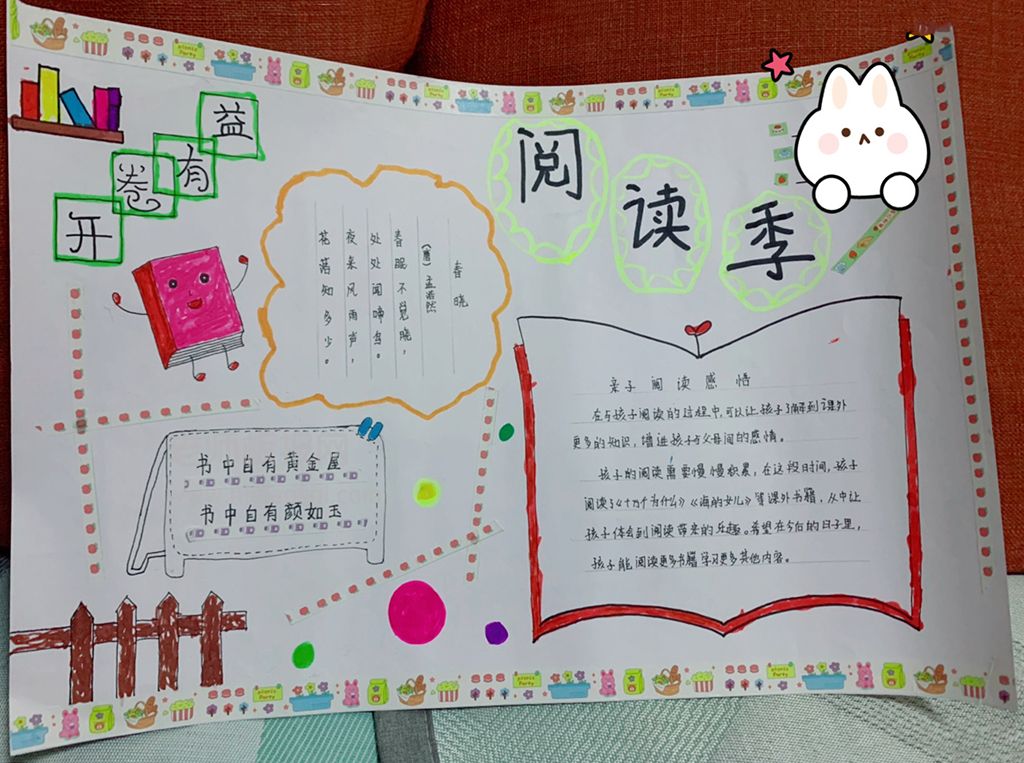 开卷有益
阅读季
春晓
(唐)孟浩然
春眠不觉晓，
处处闻啼鸟。
夜来风雨声，
花落知多少。
书中自有黄金屋
书中自有颜如玉
亲子阅读感悟
在与孩子阅读的过程中,可以让孩子了解到课外
更多的知识，增进孩子与父母间的感情。
孩子的阅读需要慢慢积累，在这段时间,孩子
阅读了《十万个为什么》《海的女儿》等课外书籍，从中让
孩子体会到阅读带来的乐趣。希望在今后的日子里，
孩子能阅读更多书籍学习更多其他内容。